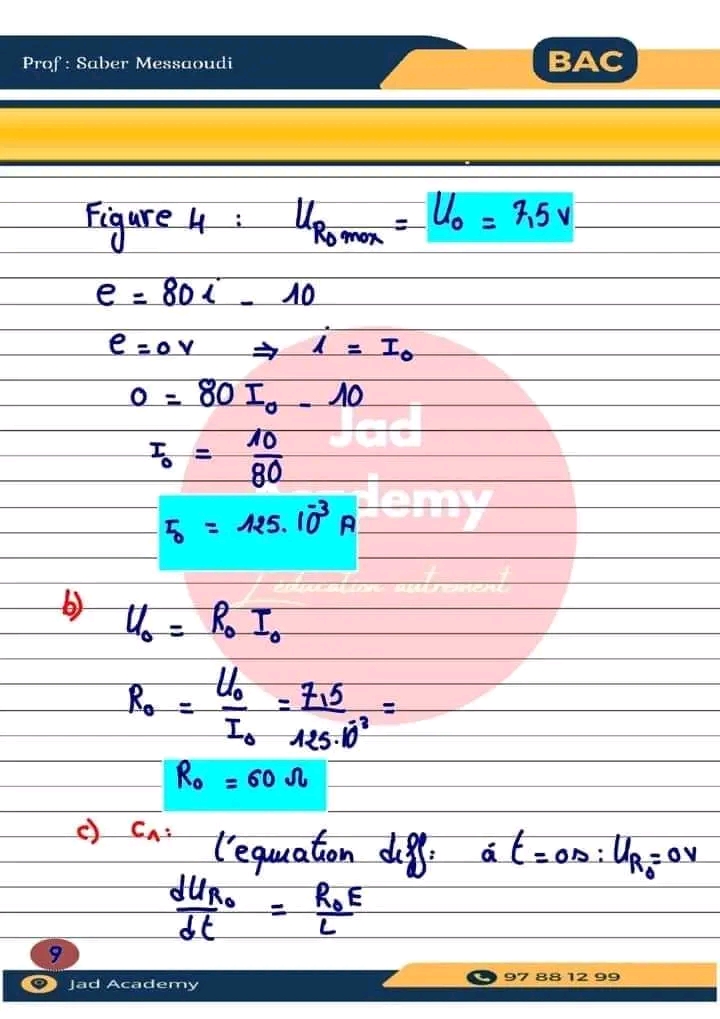 Prof : Saber Messaoudi
BAC
Figure 4 : U_R₀ max = U₀ = 7,5 V
e = 80 i - 10
e = 0 V ⇒ i = I₀
0 = 80 I₀ - 10
I₀ = 10/80
I₀ = 125. 10⁻³ A
Jad
Academy
L'éducation autrement
b) U₀ = R₀ I₀
R₀ = U₀/I₀ = 7,5/125.10⁻³ =
R₀ = 60 Ω
c) C₁: l'equation diff: á t = 0s : U_R₀ = 0V
dU_R₀/dt = R₀E/L
9
Jad Academy
97 88 12 99